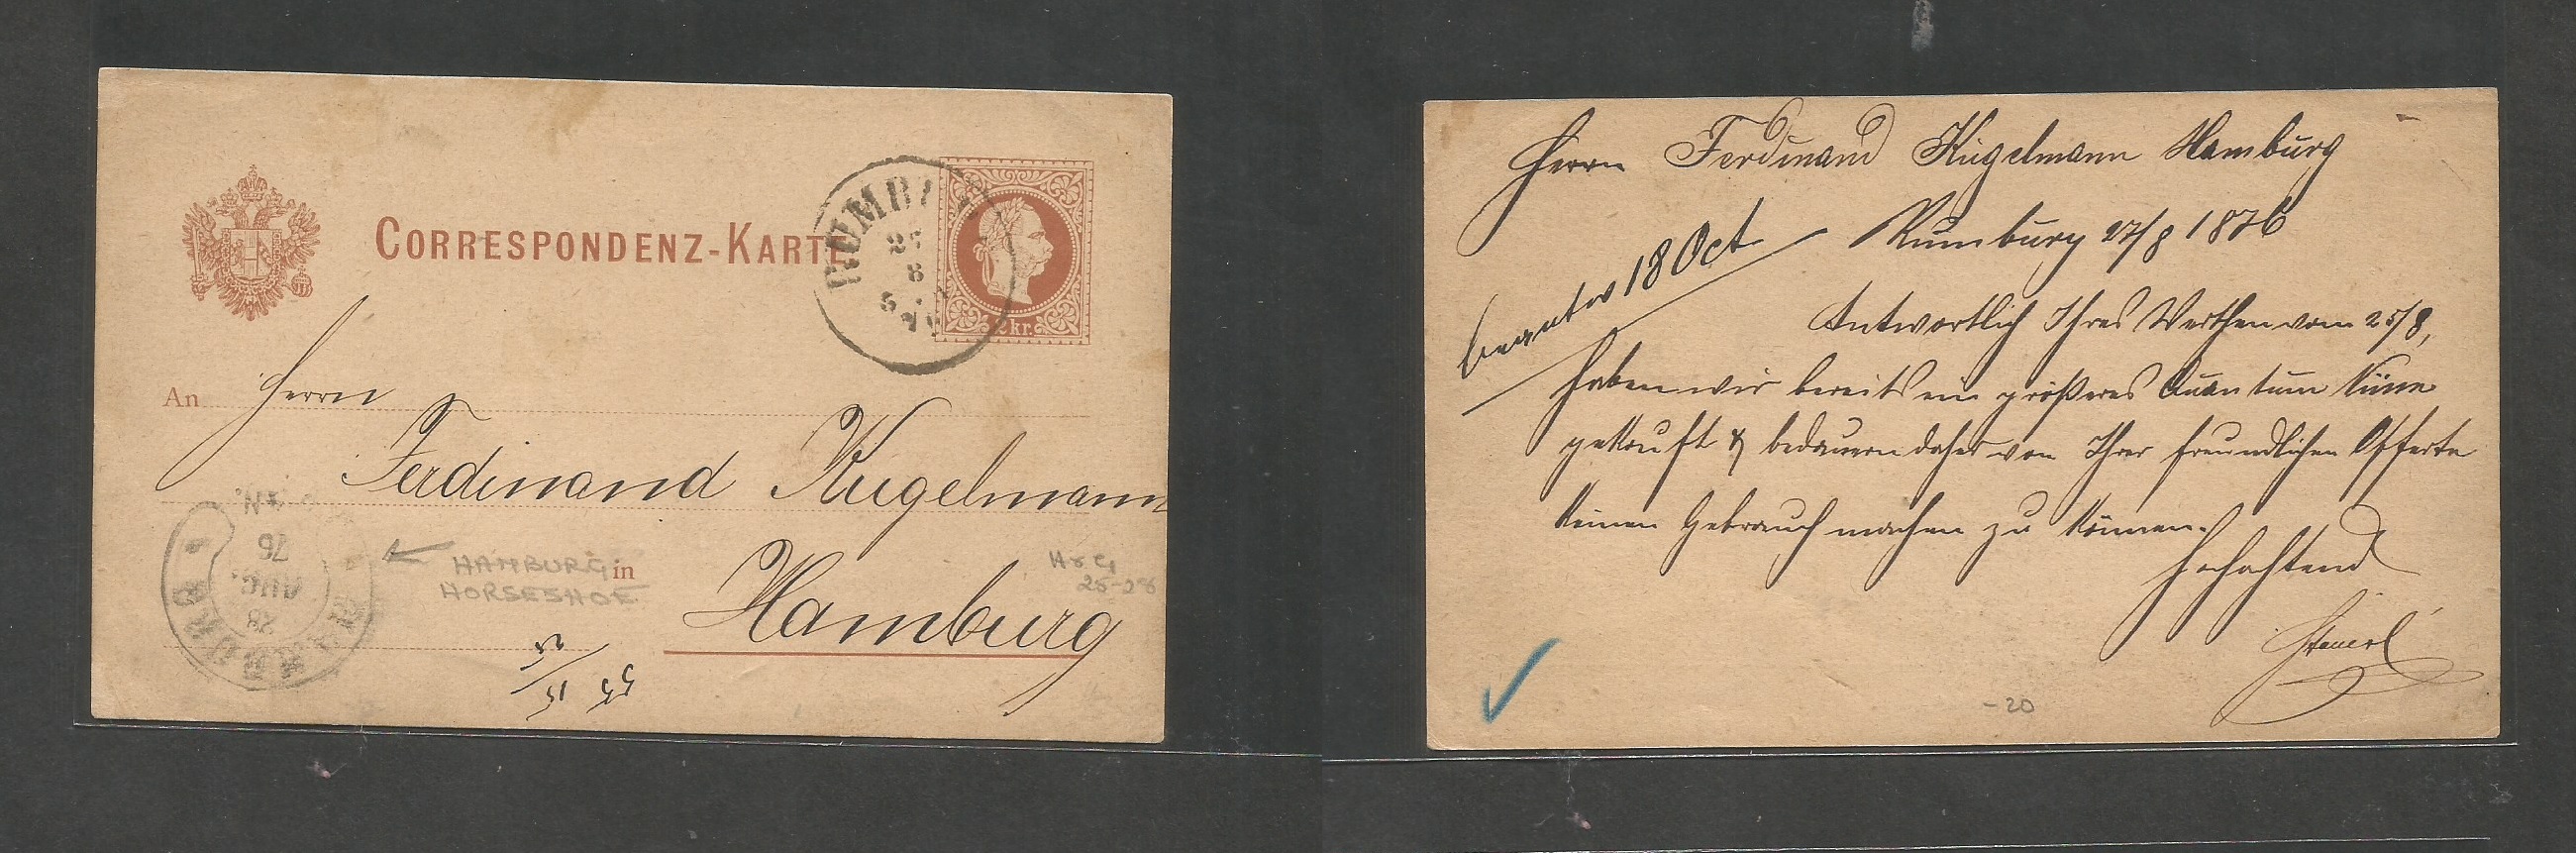 CORRESPONDENZ-KARTE
RUMBU
8
2 kr.
An Herrn
Ferdinand Kugelmann
in Hamburg
HAMBURG
28
AUG.
76
HAMBURG in
HORSESHOE
H & G
25-28
Herrn Ferdinand Kugelmann Hamburg
Rumburg 27/8 1876
beantw 18 Oct
Antwortlich Ihres Werthen vom 25/8,
haben wir bereits ein größeres Quantum
gekauft & bedauern daher von Ihrer freundlichen Offerte
keinen Gebrauch machen zu können.
Hochachtend
-20